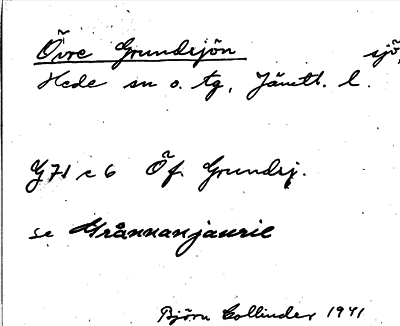 Övre Grundsjön sjö,
Hede sn o. tg, Jämtl. l.
Y71 c 6 Öf. Grundsj.
se Grånnanjaurie
Björn Collinder 1941